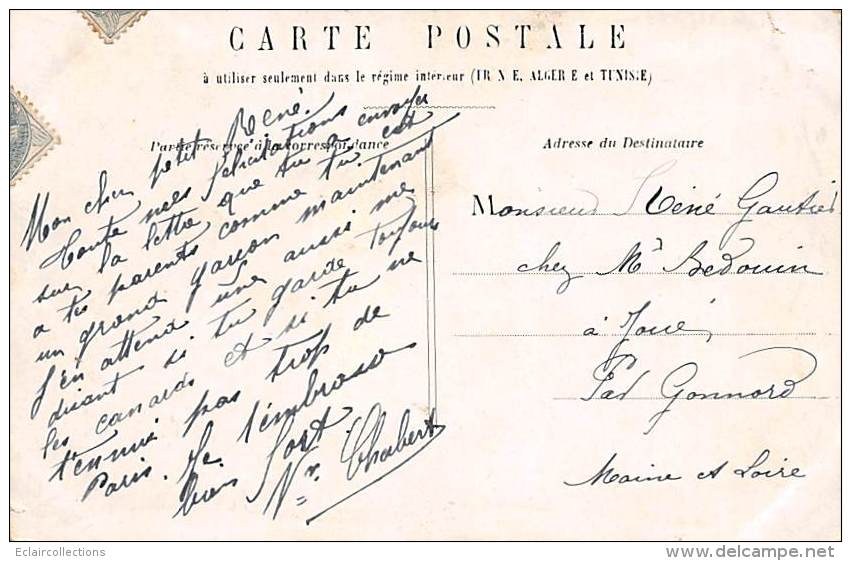 CARTE POSTALE
à utiliser seulement dans le régime intérieur (FRANCE, ALGERIE et TUNISIE)
Partie réservée à la correspondance
Adresse du Destinataire
Mon cher petit René.
Toute mes félicitations envoyer
sur la lettre que tu a
a tes parents comme tu est
un grand garcon maintenant
J'en attend une aussi me
disant si tu garde toujours
les canards et si tu ne
t'ennui pas trop de
Paris. Je t'embrasse
bien fort.
Nr. Chabert
Monsieur René Gautier
chez Mr Bedouin
à Joué,
Par Gonnord
Maine et Loire
Eclaircollections
delcampe.net